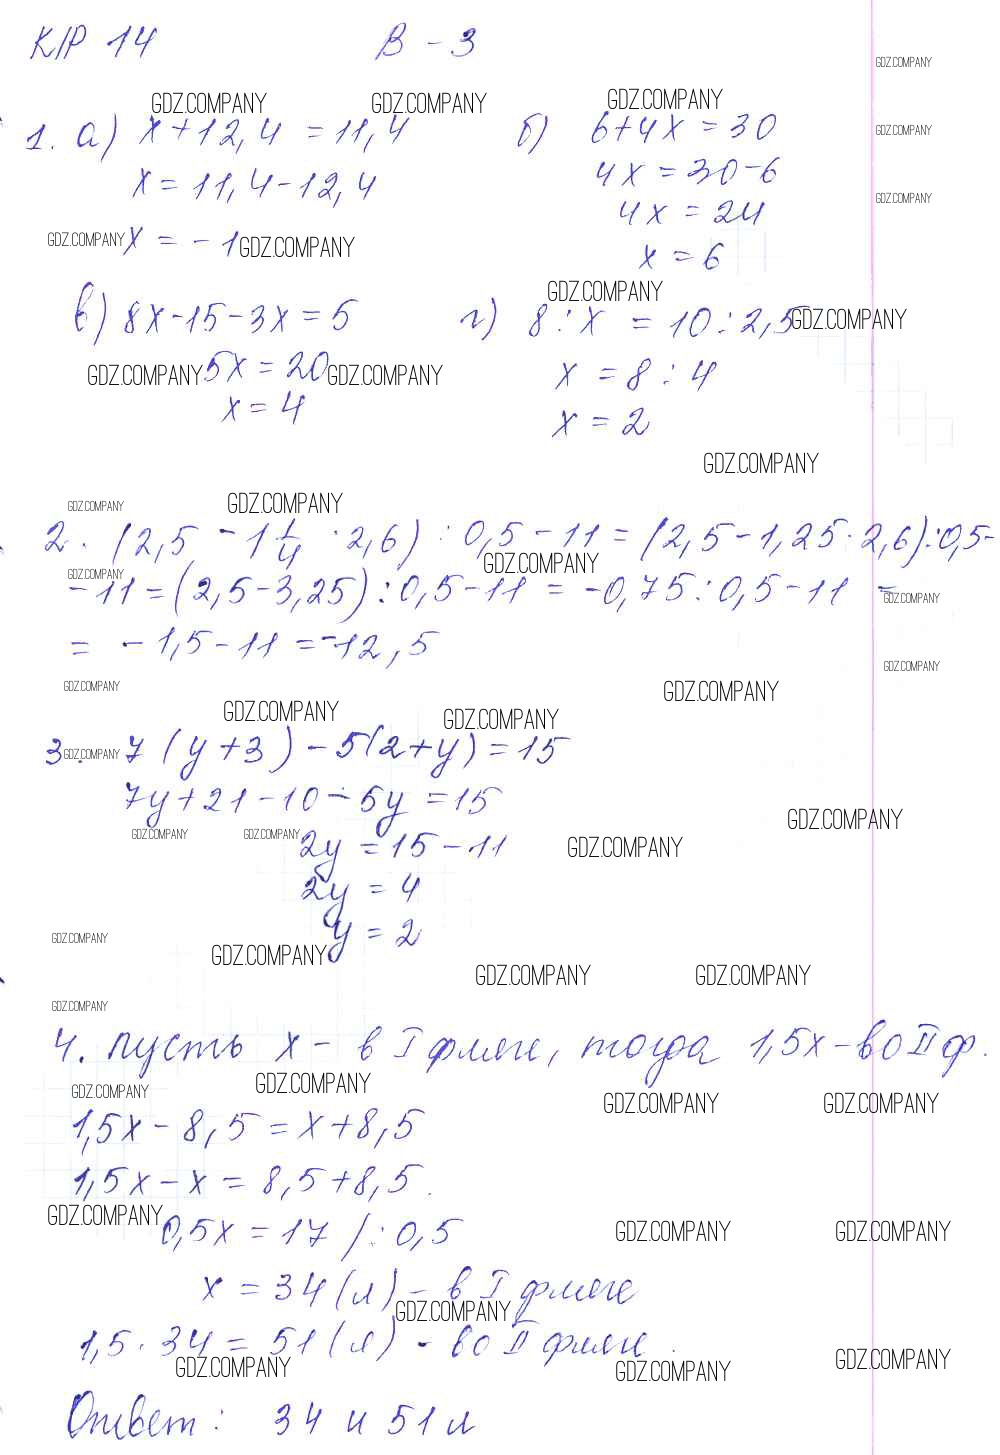 К/Р 14 В - 3
GDZ.COMPANY
GDZ.COMPANY GDZ.COMPANY GDZ.COMPANY
1. а) x + 12,4 = 11,4 б) 6 + 4x = 30
GDZ.COMPANY
x = 11,4 - 12,4 4x = 30 - 6
GDZ.COMPANY
4x = 24
GDZ.COMPANY x = - 1 GDZ.COMPANY
x = 6
GDZ.COMPANY
в) 8x - 15 - 3x = 5 г) 8 : x = 10 : 2,5 GDZ.COMPANY
GDZ.COMPANY 5x = 20 GDZ.COMPANY x = 8 : 4
x = 4 x = 2
GDZ.COMPANY
GDZ.COMPANY GDZ.COMPANY
2. (2,5 - 1 1/4 · 2,6) : 0,5 - 11 = (2,5 - 1,25 · 2,6) : 0,5 -
GDZ.COMPANY GDZ.COMPANY
- 11 = (2,5 - 3,25) : 0,5 - 11 = -0,75 : 0,5 - 11 =
GDZ.COMPANY
= - 1,5 - 11 = -12,5
GDZ.COMPANY
GDZ.COMPANY GDZ.COMPANY
GDZ.COMPANY GDZ.COMPANY
3. GDZ.COMPANY 7 (y + 3) - 5(2 + y) = 15
7y + 21 - 10 - 5y = 15
GDZ.COMPANY
GDZ.COMPANY GDZ.COMPANY 2y = 15 - 11 GDZ.COMPANY
2y = 4
GDZ.COMPANY y = 2
GDZ.COMPANY
GDZ.COMPANY GDZ.COMPANY
GDZ.COMPANY
4. Пусть x - в I фляге, тогда 1,5x - во II ф.
GDZ.COMPANY GDZ.COMPANY
GDZ.COMPANY GDZ.COMPANY
1,5x - 8,5 = x + 8,5
1,5x - x = 8,5 + 8,5.
GDZ.COMPANY 0,5x = 17 / : 0,5 GDZ.COMPANY GDZ.COMPANY
x = 34 (л) - в I фляге
GDZ.COMPANY
1,5 · 34 = 51 (л) - во II фляге.
GDZ.COMPANY GDZ.COMPANY GDZ.COMPANY
Ответ: 34 и 51 л